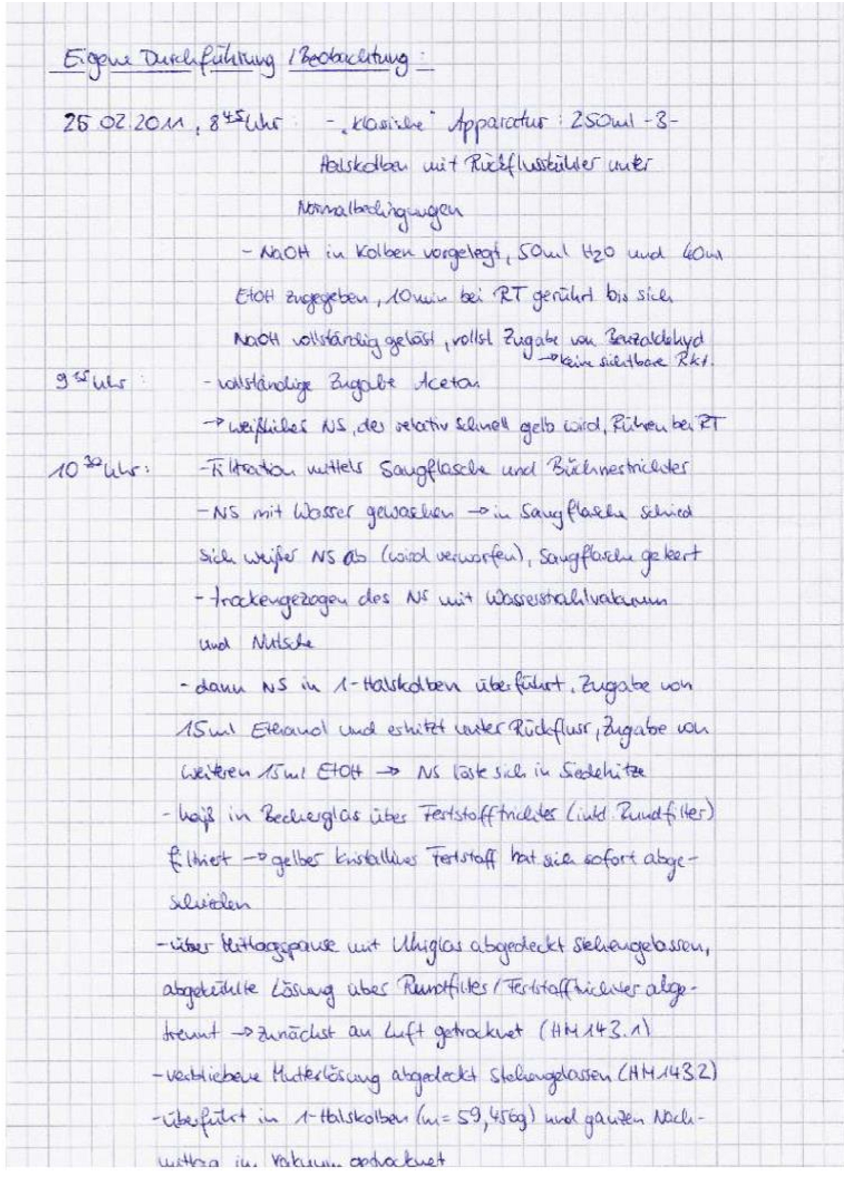 Eigene Durchführung / Beobachtung :
25.02.2011, 8⁴⁵ Uhr : - "klassische" Apparatur : 250ml -3-
Halskolben mit Rückflusskühler unter
Normalbedingungen
- NaOH in Kolben vorgelegt, 50ml H2O und 40ml
EtOH zugegeben, 10min bei RT gerührt bis sich
NaOH vollständig gelöst, vollst. Zugabe von Benzaldehyd
→ keine sichtbare Rkt.
9 Uhr : - vollständige Zugabe Aceton
→ weißlicher NS, der relativ schnell gelb wird, Rühren bei RT
10³⁰ Uhr : - Filtration mittels Saugflasche und Büchnertrichter
- NS mit Wasser gewaschen → in Saugflasche schied
sich weißer NS ab (wird verworfen), Saugflasche geleert
- trockengezogen des NS mit Wasserstrahlvakuum
und Nutsche
- dann NS in 1-Halskolben überführt, Zugabe von
15ml Ethanol und erhitzt unter Rückfluss, Zugabe von
weiteren 15ml EtOH → NS löste sich in Siedehitze
- heiß in Becherglas über Feststofftrichter (inkl. Rundfilter)
filtriert → gelber kristalliner Feststoff hat sich sofort abge-
schieden
- über Mittagspause mit Uhrglas abgedeckt stehengelassen,
abgekühlte Lösung über Rundfilter / Feststofftrichter abge-
trennt → zunächst an Luft getrocknet (HM 143.1)
- verbliebene Mutterlösung abgedeckt stehengelassen (HM 143.2)
- überführt in 1-Halskolben (m = 59,456g) und ganzen Nach-
mittag im Vakuum getrocknet